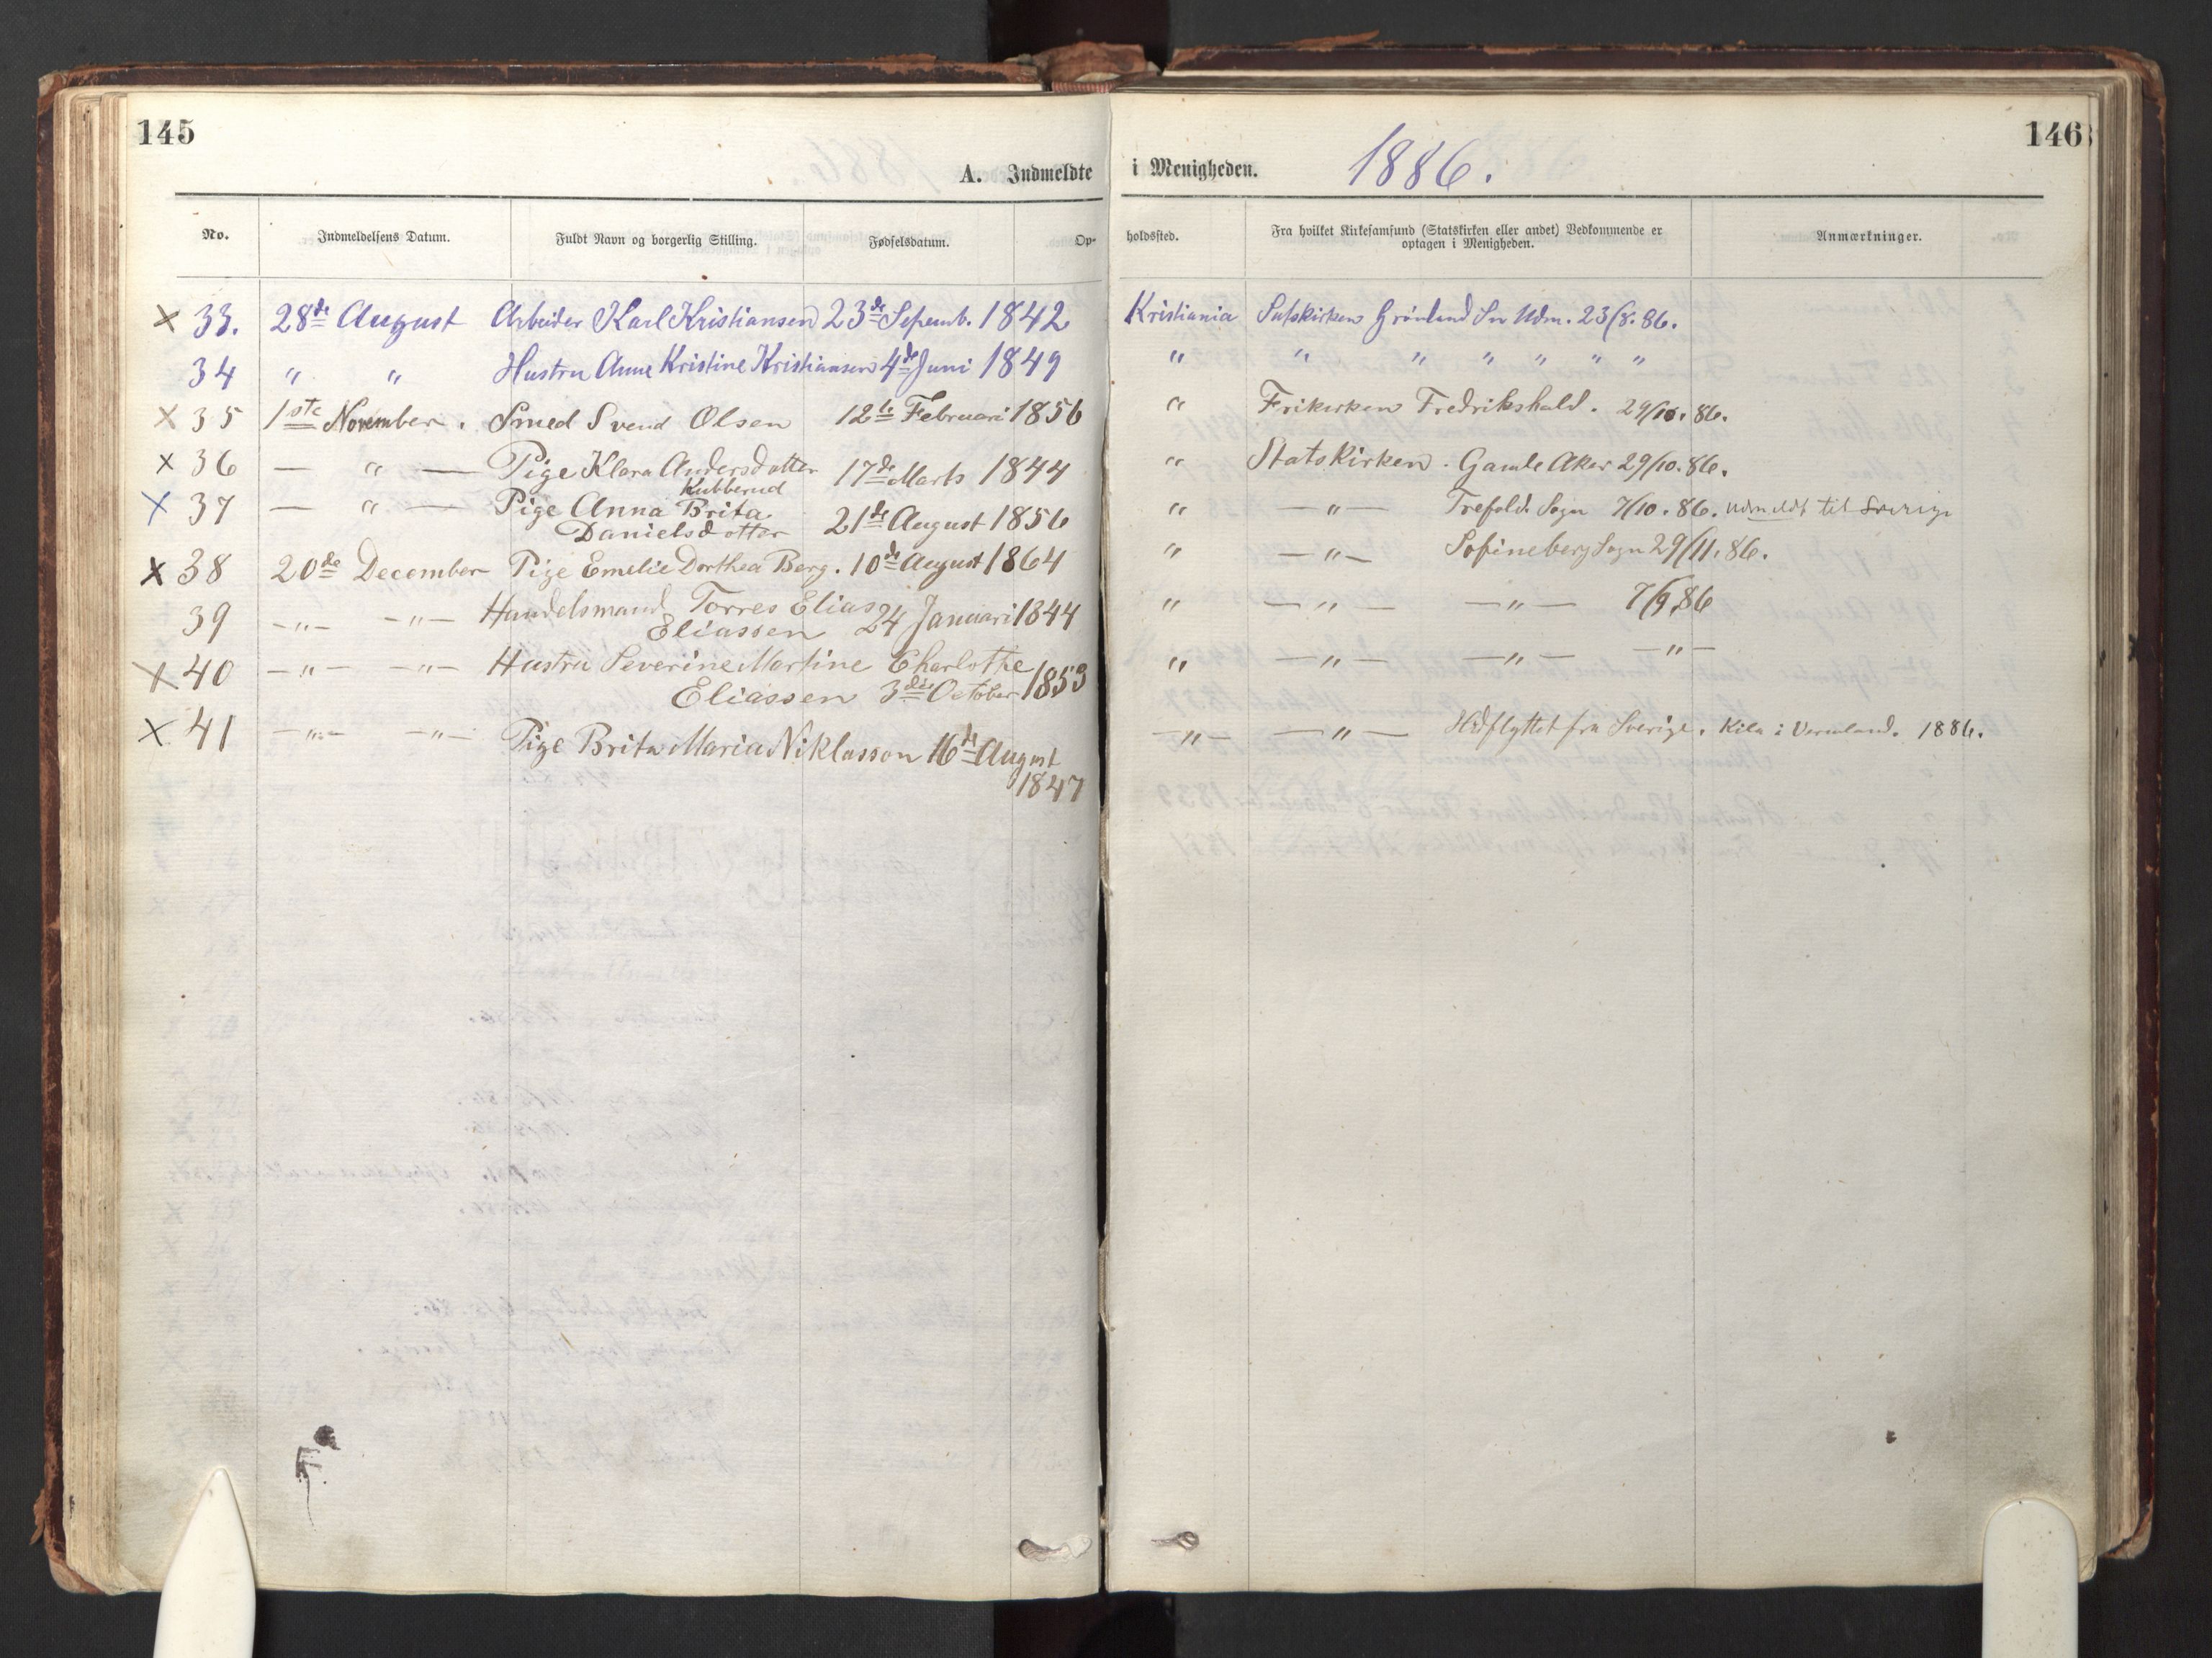 145
146
A. Indmeldte i Menigheden. 1886.
No. Indmeldelsens Datum. Fuldt Navn og borgerlig Stilling. Fødselsdatum. Opholdssted. Fra hvilket Kirkesamfund (Statskirken eller andet) Vedkommende er Anmærkninger.
optagen i Menigheden.
x 33. 28de August Arbeider Karl Kristiansen 23de Septemb. 1842 Kristiania Grönland Sn Udm. 23/8. 86.
34 " " Hustru Anne Kristine Kristiansen 4de Juni 1849 " " " " " " "
x 35 1ste November. Smed Svend Olsen 12te Februari 1856 " Frikirken Fredrikshald. 29/10. 86.
x 36 — " — Pige Klara Andersdatter 17de Marts 1844 " Statskirken. Gamle Aker 29/10. 86.
Kubberud
x 37 — " — Pige Anna Brita 21de August 1856 " — " — Trefold. Sogn 7/10. 86. udmeldt til Sverige
Danielsdotter
x 38 20de December Pige Emelie Dorthea Berg. 10de August 1864 " — " — Sofineberg Sogn 29/11. 86.
39 — " — — " — Handelsmand Torres Elias 24 Januari 1844 " — " — — " — 7/9 86
Eliassen
x 40 — " — — " — Hustru Severine Martine Charlotte " — " — — " — — " —
Eliassen 3die October 1853
x 41 — " — — " — Pige Brita Maria Niklasson 16de August — " — — " — Hidflyttet fra Sverige. Kila i Vermland. 1886.
1847